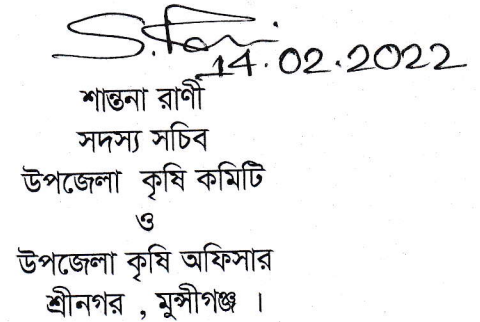 14.02.2022
শান্তনা রাণী
সদস্য সচিব
উপজেলা কৃষি কমিটি
ও
উপজেলা কৃষি অফিসার
শ্রীনগর , মুন্সীগঞ্জ ।